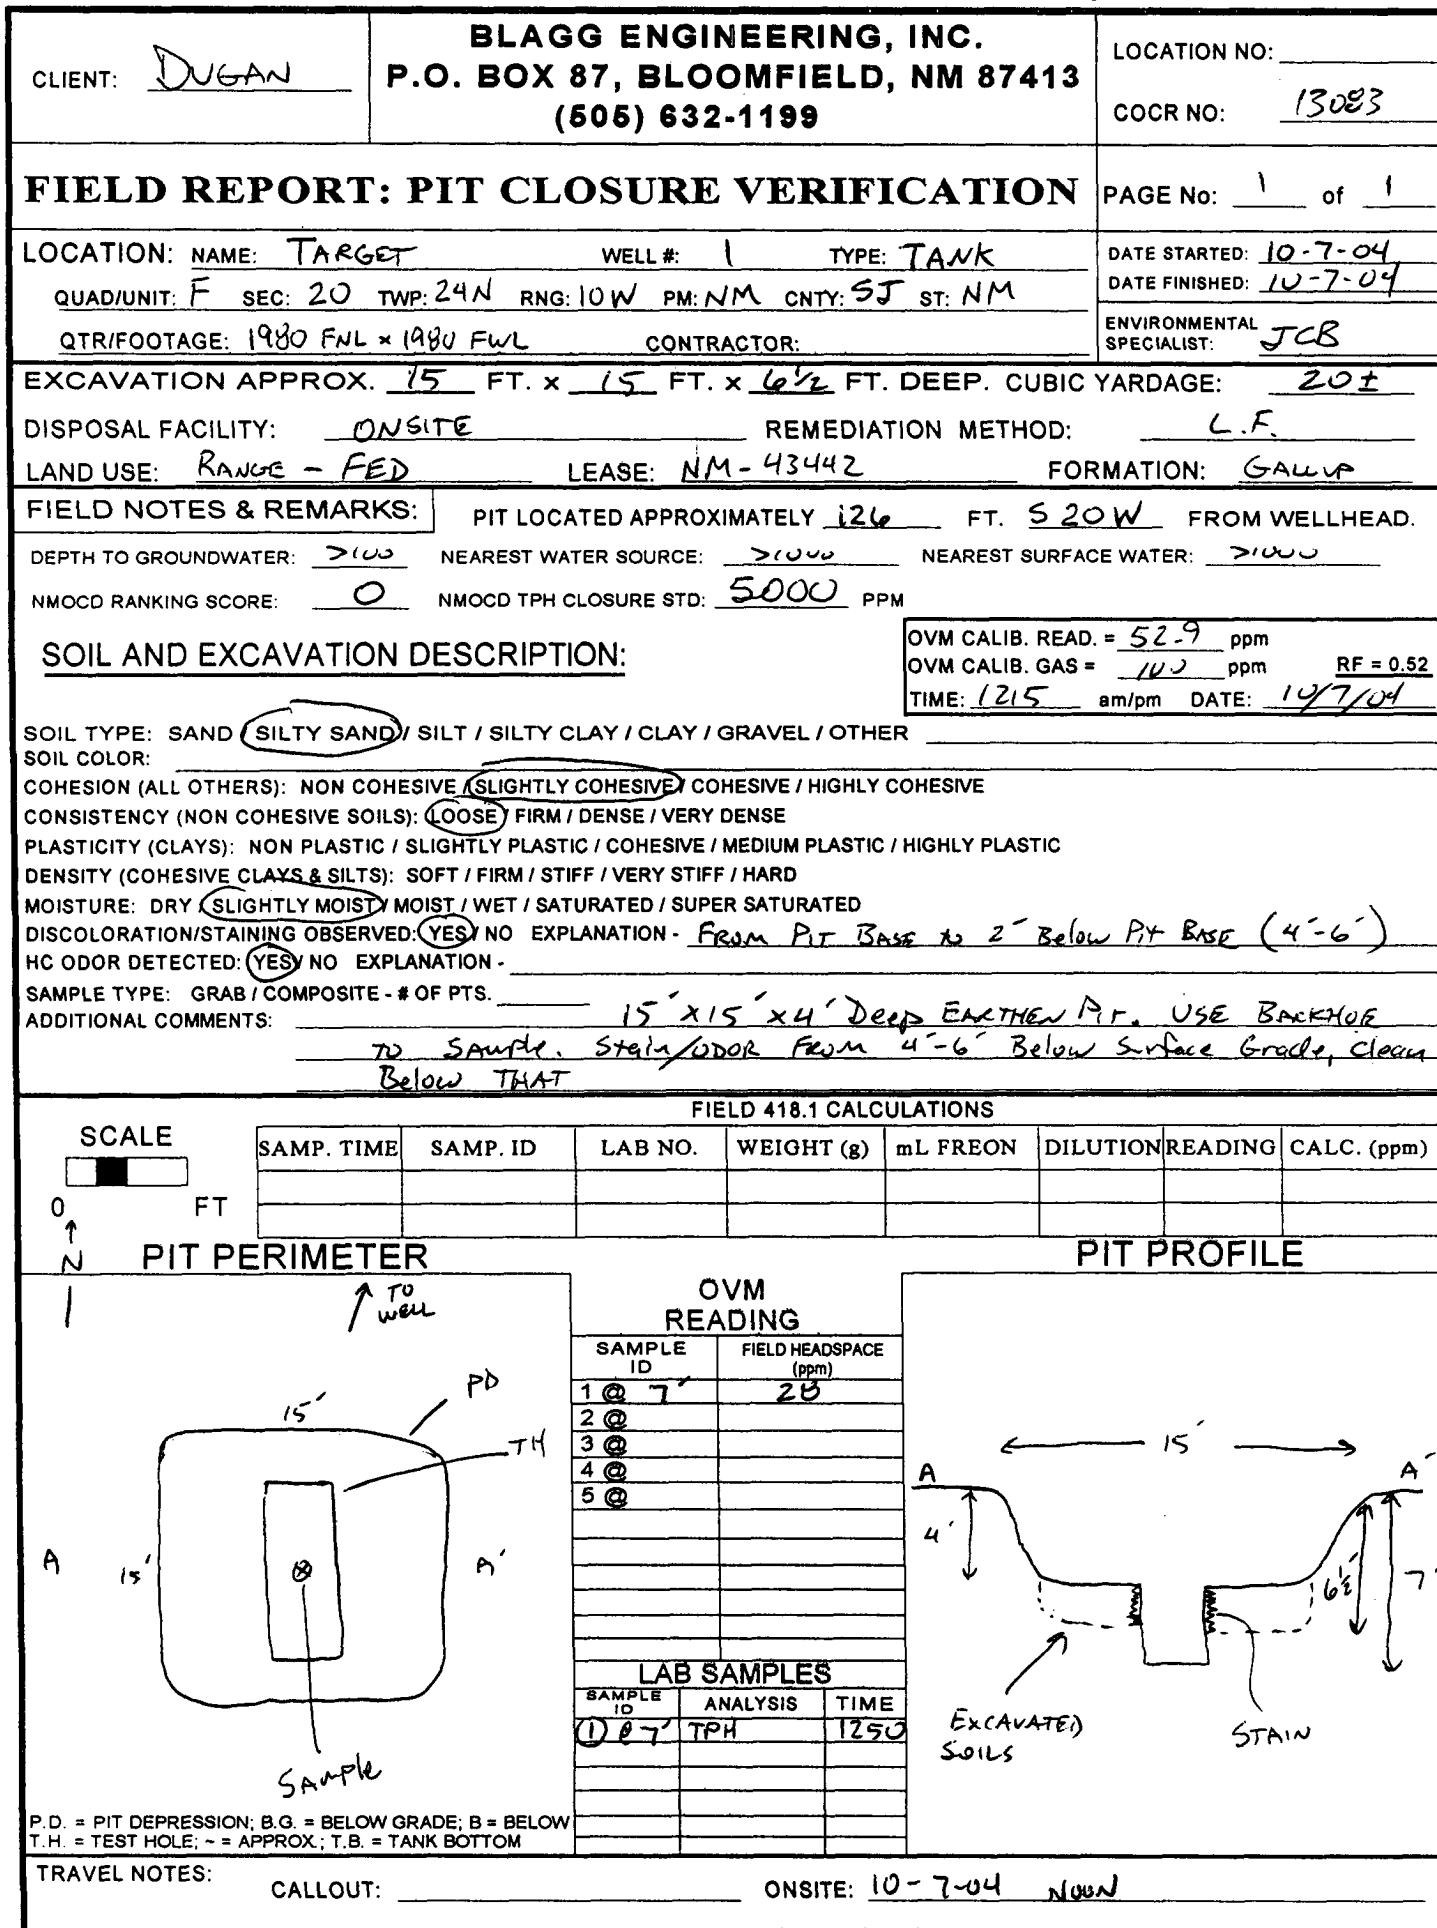 CLIENT: DUGAN
BLAGG ENGINEERING, INC.
P.O. BOX 87, BLOOMFIELD, NM 87413
(505) 632-1199
LOCATION NO:
COCR NO: 13083
FIELD REPORT: PIT CLOSURE VERIFICATION
PAGE No: 1 of 1
LOCATION: NAME: TARGET WELL #: 1 TYPE: TANK
QUAD/UNIT: F SEC: 20 TWP: 24N RNG: 10W PM: NM CNTY: SJ ST: NM
QTR/FOOTAGE: 1980 FNL x 1980 FWL CONTRACTOR:
DATE STARTED: 10-7-04
DATE FINISHED: 10-7-04
ENVIRONMENTAL
SPECIALIST: JCB
EXCAVATION APPROX. 15 FT. x 15 FT. x 6 1/2 FT. DEEP. CUBIC YARDAGE: 20±
DISPOSAL FACILITY: ONSITE REMEDIATION METHOD: L.F.
LAND USE: RANGE - FED LEASE: NM-43442 FORMATION: GALLUP
FIELD NOTES & REMARKS: PIT LOCATED APPROXIMATELY 126 FT. S20W FROM WELLHEAD.
DEPTH TO GROUNDWATER: >100 NEAREST WATER SOURCE: >1000 NEAREST SURFACE WATER: >1000
NMOCD RANKING SCORE: 0 NMOCD TPH CLOSURE STD: 5000 PPM
SOIL AND EXCAVATION DESCRIPTION:
OVM CALIB. READ. = 52.9 ppm
OVM CALIB. GAS = 100 ppm RF = 0.52
TIME: 1215 am/pm DATE: 10/7/04
SOIL TYPE: SAND / SILTY SAND / SILT / SILTY CLAY / CLAY / GRAVEL / OTHER
SOIL COLOR:
COHESION (ALL OTHERS): NON COHESIVE / SLIGHTLY COHESIVE / COHESIVE / HIGHLY COHESIVE
CONSISTENCY (NON COHESIVE SOILS): LOOSE / FIRM / DENSE / VERY DENSE
PLASTICITY (CLAYS): NON PLASTIC / SLIGHTLY PLASTIC / COHESIVE / MEDIUM PLASTIC / HIGHLY PLASTIC
DENSITY (COHESIVE CLAYS & SILTS): SOFT / FIRM / STIFF / VERY STIFF / HARD
MOISTURE: DRY / SLIGHTLY MOIST / MOIST / WET / SATURATED / SUPER SATURATED
DISCOLORATION/STAINING OBSERVED: YES / NO EXPLANATION - FROM PIT BASE to 2' Below Pit BASE (4'-6')
HC ODOR DETECTED: YES / NO EXPLANATION -
SAMPLE TYPE: GRAB / COMPOSITE - # OF PTS.
ADDITIONAL COMMENTS: 15' x 15' x 4' Deep EARTHEN PIT. USE BACKHOE
TO SAMPLE. Stain/ODOR FROM 4'-6' Below Surface Grade, Clean
Below THAT
FIELD 418.1 CALCULATIONS
SCALE
0 FT
SAMP. TIME SAMP. ID LAB NO. WEIGHT (g) mL FREON DILUTION READING CALC. (ppm)
N
PIT PERIMETER
PIT PROFILE
TO
WELL
PD
15'
TH
A 15' A'
SAmple
P.D. = PIT DEPRESSION; B.G. = BELOW GRADE; B = BELOW
T.H. = TEST HOLE; ~ = APPROX.; T.B. = TANK BOTTOM
OVM
READING
SAMPLE ID FIELD HEADSPACE (ppm)
1 @ 7' 28
2 @
3 @
4 @
5 @
LAB SAMPLES
SAMPLE ID ANALYSIS TIME
① @ 7' TPH 1250
15'
A A'
4'
6½'
7'
EXCAVATED
SOILS
STAIN
TRAVEL NOTES: CALLOUT: ONSITE: 10-7-04 NOON